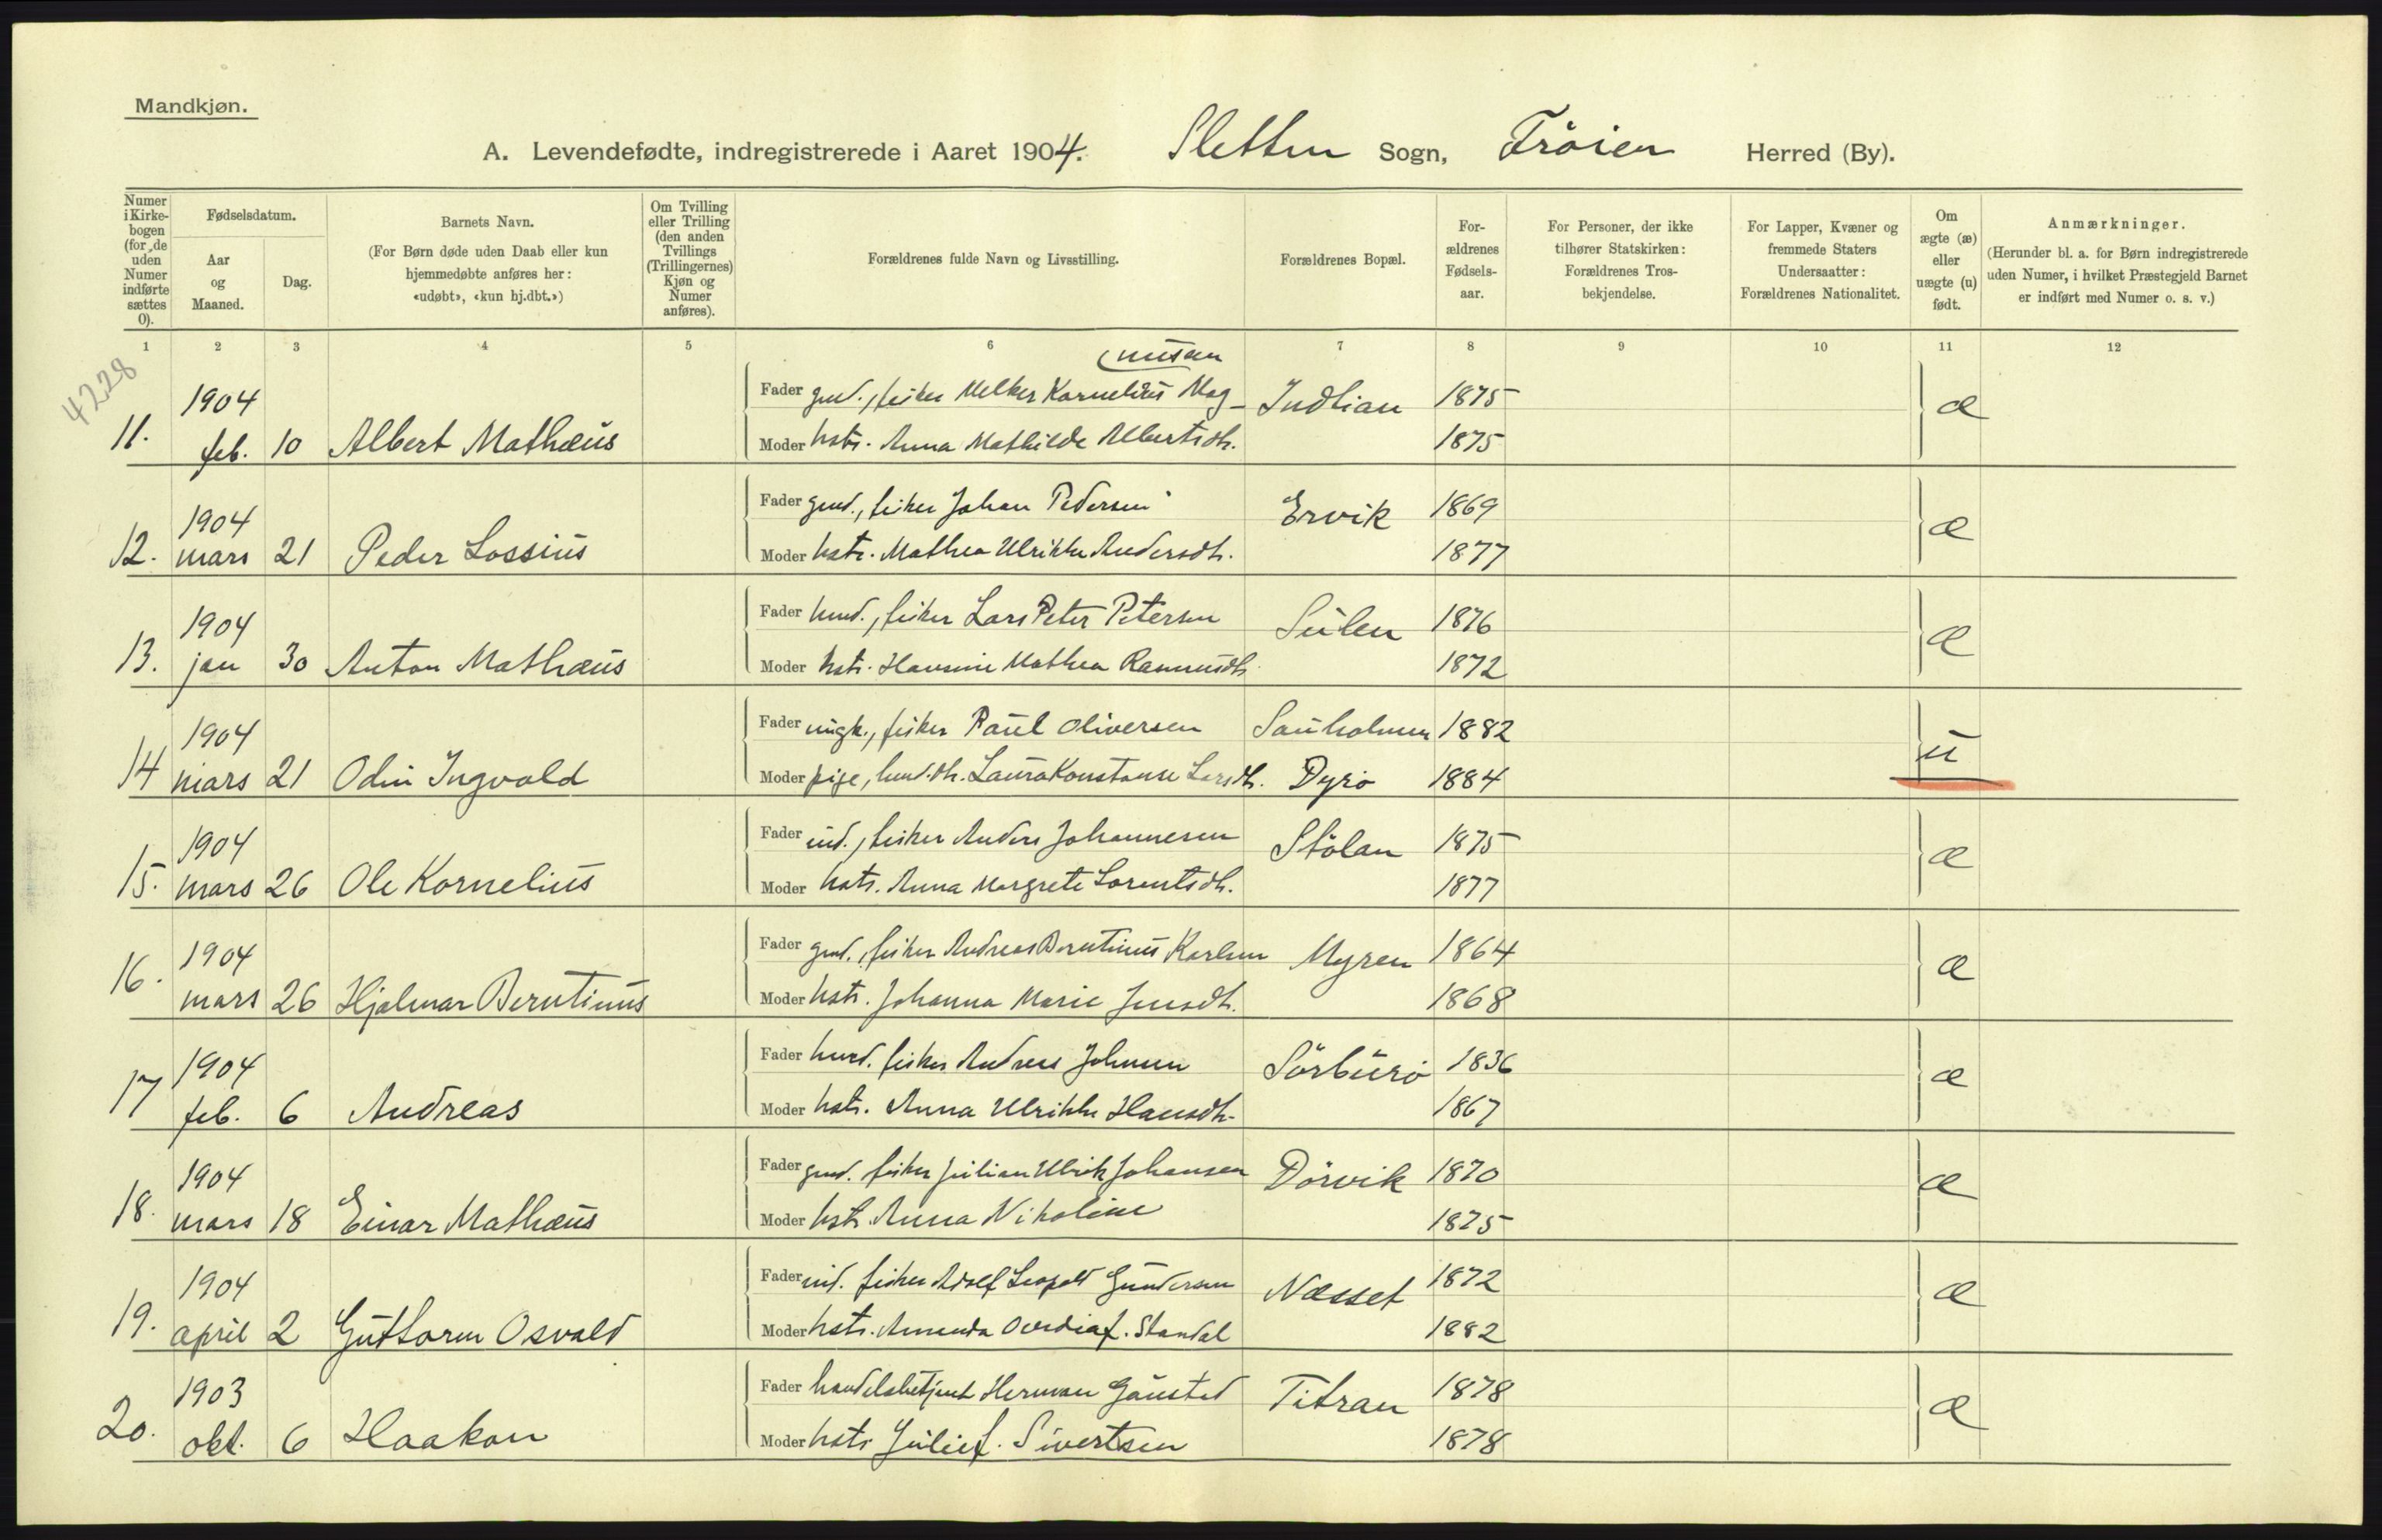 Mandkjøn.
A. Levendefødte, indregistrerede i Aaret 1904. Sletten Sogn, Frøien Herred (By).
Numer i Kirke-bogen (for de uden Numer indførte sættes 0).
Fødselsdatum.
Aar og Maaned.
Dag.
Barnets Navn.
(For Børn døde uden Daab eller kun hjemmedøbte anføres her: «udøbt», «kun hj.dbt.»)
Om Tvilling eller Trilling (den anden Tvillings (Trillingernes) Kjøn og Numer anføres).
Forældrenes fulde Navn og Livsstilling.
Forældrenes Bopæl.
For-ældrenes Fødsels-aar.
For Personer, der ikke tilhører Statskirken: Forældrenes Tros-bekjendelse.
For Lapper, Kvæner og fremmede Staters Undersaatter: Forældrenes Nationalitet.
Om ægte (æ) eller uægte (u) født.
Anmærkninger.
(Herunder bl. a. for Børn indregistrerede uden Numer, i hvilket Præstegjeld Barnet er indført med Numer o. s. v.)
1 2 3 4 5 6 7 8 9 10 11 12
4228
nusen
1904 Fader gmd., fisker Melker Kornelius Mag- Indlian 1875 æ
11. feb. 10 Albert Mathæus Moder hstr. Anna Mathilde Albertsdtr. 1875
1904 Fader gmd., fisker Johan Pedersen Ervik 1869 æ
12. mars 21 Peder Lossius Moder hstr. Mathea Ulrikke Andersdtr. 1877
1904 Fader hmd., fisker Lars Peter Petersen Sulen 1876 æ
13. jan 30 Anton Mathæus Moder hstr. Hansine Mathea Rasmusdtr. 1872
1904 Fader ungk., fisker Paul Oliversen Sauholmen 1882 u
14 mars 21 Odin Ingvald Moder pige, hmd.dtr. Laura Konstanse Larsdtr. Dyrø 1884
1904 Fader ind., fisker Anders Johannesen Stølan 1875 æ
15. mars 26 Ole Kornelius Moder hstr. Anna Margrete Lorentsdtr. 1877
1904 Fader gmd., fisker Andreas Berntinus Karlsen Myren 1864 æ
16. mars 26 Hjalmar Berntinus Moder hstr. Johanna Marie Jensdtr. 1868
1904 Fader hmd. fisker Andreas Johnsen Sørburø 1836 æ
17 feb. 6 Andreas Moder hstr. Anna Ulrikke Hansdtr. 1867
1904 Fader gmd. fisker Julian Ulrik Johansen Dørvik 1870 æ
18. mars 18 Einar Mathæus Moder hstr. Anna Nikoline 1875
1904 Fader ind. fisker Adolf Leopold Gundersen Næsset 1872 æ
19. april 2 Guttorm Osvald Moder hstr. Amanda Ovedia f. Standal 1882
1903 Fader handelsbetjent Herman Gausted Titran 1878 æ
20. okt. 6 Haakon Moder hstr Julie f. Sivertsen 1878